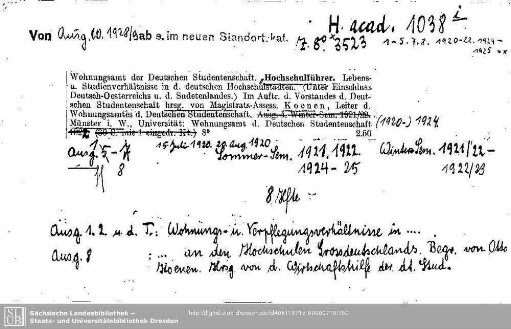 H. acad. 1038 i
Von Ausg. 10. 1928/9 ab s. im neuen Standort. kat.
Z. 8° 3523
1-5. 7. 8. 1920-22. 1924-1925
Wohnungsamt der Deutschen Studentenschaft. Hochschulführer. Lebens-
u. Studienverhältnisse in d. deutschen Hochschulstädten. (Unter Einschluss
Deutsch-Oesterreichs u. d. Sudetenlandes.) Im Auftr. d. Vorstandes d. Deut-
schen Studentenschaft hrsg. von Magistrats-Assess. Koenen, Leiter d.
Wohnungsamtes d. Deutschen Studentenschaft. Ausg. 4. Winter-Sem. 1921/22.
Münster i. W., Universität: Wohnungsamt d. Deutschen Studentenschaft (1920-) 1924
8° 2.60
Ausg. 1. 5-7 15. Juli 1920. 20. Aug 1920
Sommer-Sem. 1921. 1922 Winter-Sem. 1921/22-
8 1924-25 1922/23
8 Hefte -
Ausg. 1. 2 u. d. T.: Wohnungs- u. Verpflegungsverhältnisse in ....
Ausg. 8 : ... an den Hochschulen Grossdeutschlands. Begr. von Otto
Koenen. Hrsg von d. Wirtschaftshilfe der dt. Stud.
SLUB
Sächsische Landesbibliothek –
Staats- und Universitätsbibliothek Dresden